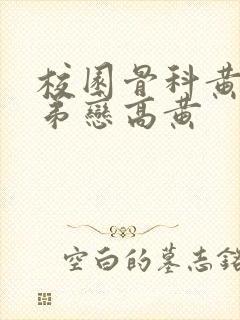 校園骨科黃
弟戀高黃
空白的墓志銘